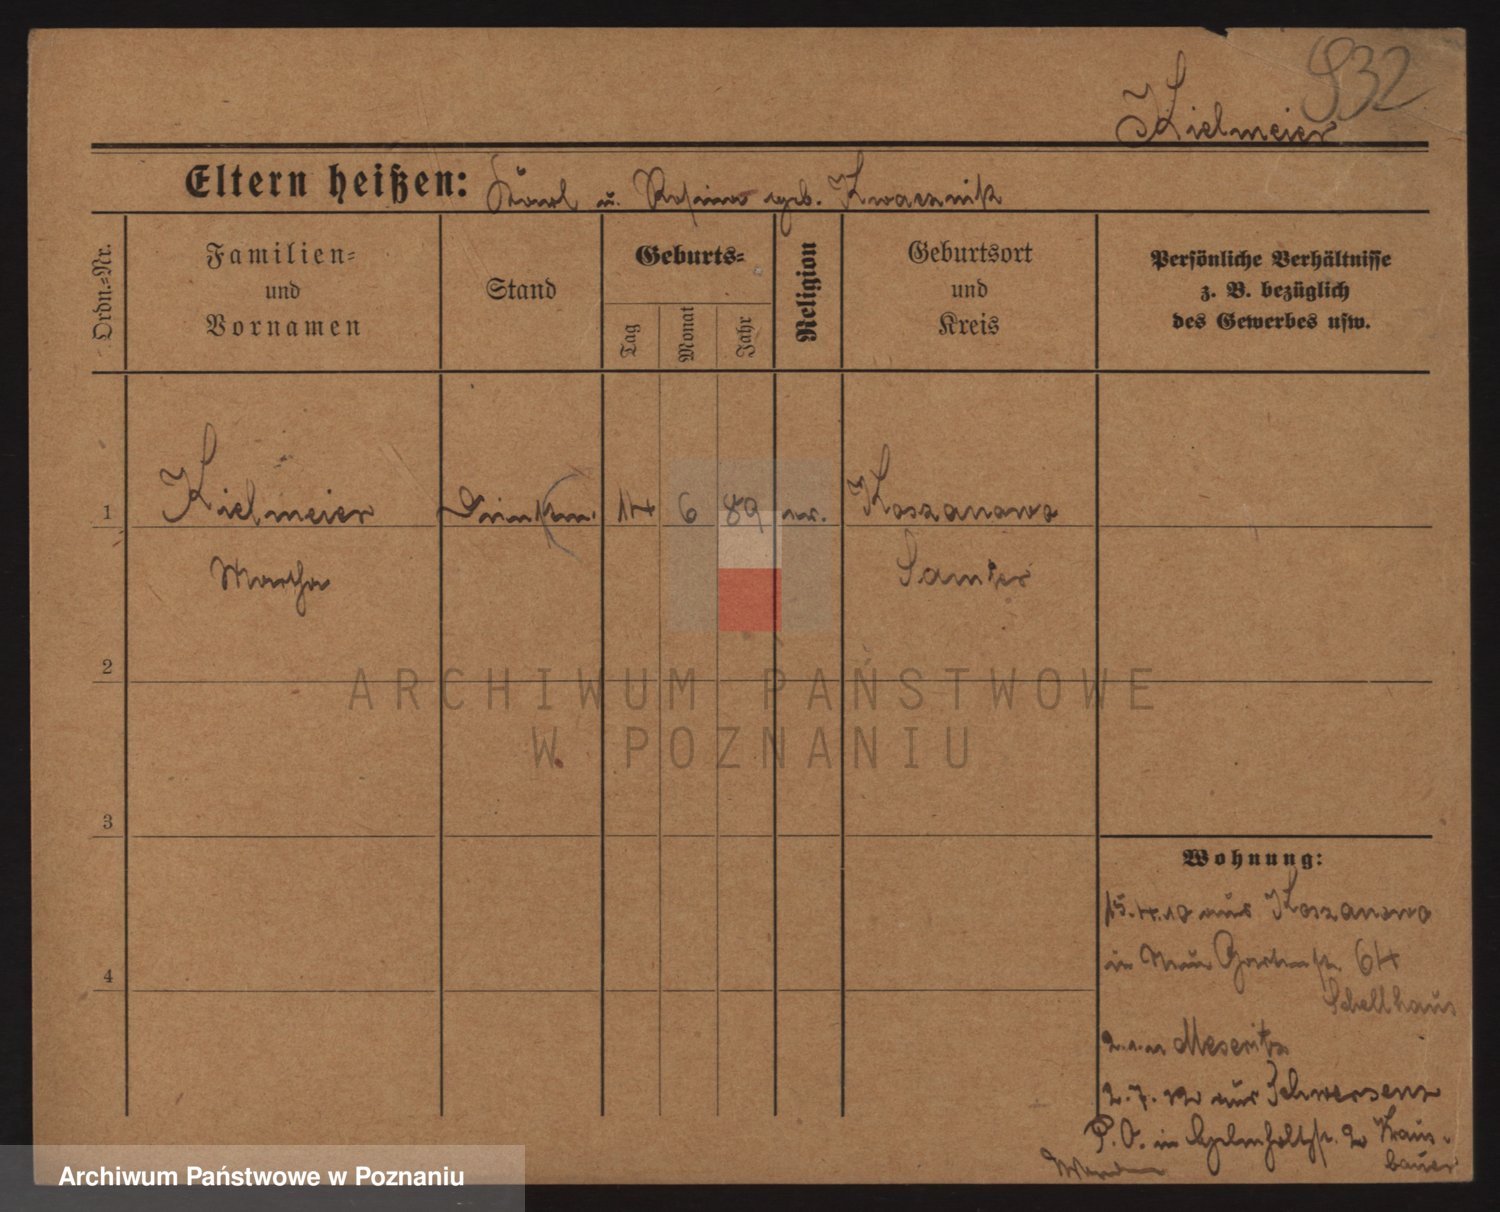 932
Kielmeier
Eltern heißen: Karl u. Rosina geb. Kwasznik
Ordn.-Nr.
Familien-
und
Vornamen
Stand
Geburts-
Tag
Monat
Jahr
Religion
Geburtsort
und
Kreis
Persönliche Verhältnisse
z. B. bezüglich
des Gewerbes usw.
1 Kielmeier 14 6 89 ev. Koszanowo
Martha Samter
2
ARCHIWUM PAŃSTWOWE
W POZNANIU
3
Wohnung:
15.4.10 aus Koszanowo
in Neue Gartenstr. 64
Schellhaus
4
Meseritz
2.7. aus Schwersenz
P. O. in
Archiwum Państwowe w Poznaniu